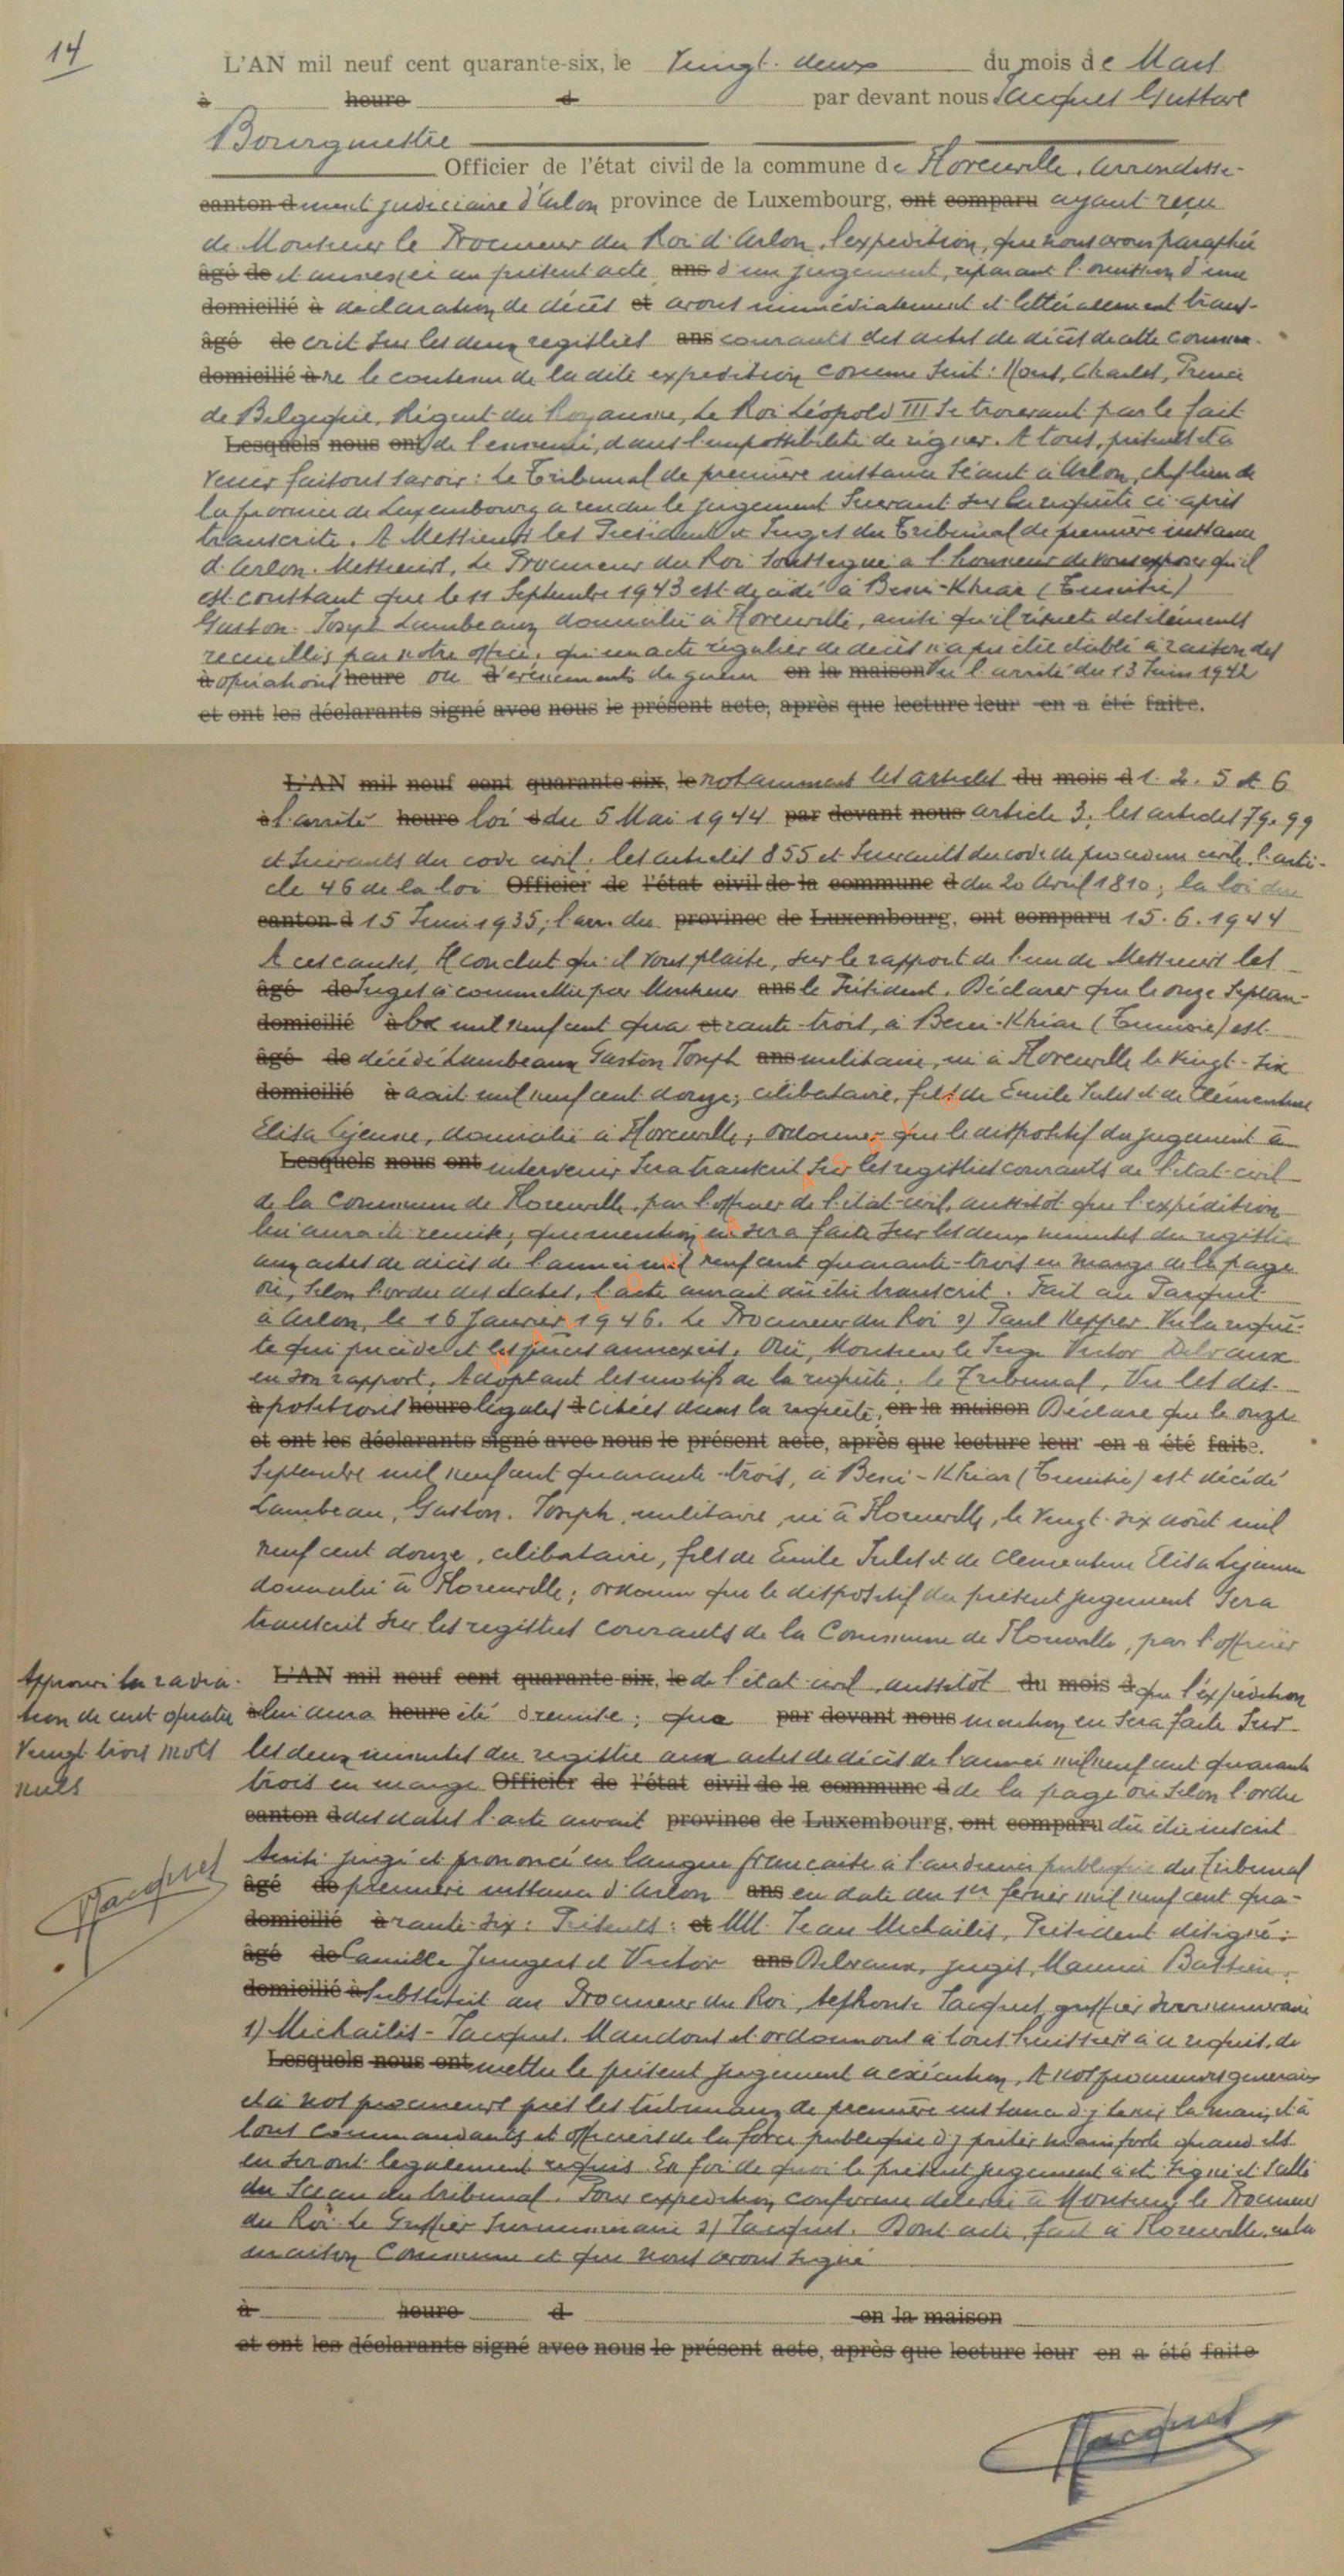 14
L'AN mil neuf cent quarante-six, le Vingt-deux du mois de Mars
à heure d par devant nous Jacques Gustave
Bourgmestre
Officier de l'état civil de la commune de Florenville, arrondisse-
canton d ment judiciaire d'Arlon province de Luxembourg, ont comparu ayant reçu
de Monsieur le Procureur du Roi d'Arlon, l'expédition, que nous avons paraphée
âgé de et annexée au présent acte, ans d'un jugement, réparant l'omission d'une
domicilié à déclaration de décès et avons immédiatement et littéralement trans-
âgé de crit sur les deux registres ans courants des actes de décès de cette commu-
domicilié à ne le contenu de la dite expédition comme suit: Nous, Charles, Prince
de Belgique, Régent du Royaume, Le Roi Léopold III se trouvant par le fait
Lesquels nous ont de l'ennemi, dans l'impossibilité de régner. A tous, présents et à
venir faisons savoir: Le Tribunal de première instance séant à Arlon, chef lieu de
la province de Luxembourg a rendu le jugement suivant sur la requête ci-après
transcrite. A Messieurs les Président et Juges du Tribunal de première instance
d'Arlon. Messieurs, Le Procureur du Roi soussigné a l'honneur de vous exposer qu'il
est constant que le 11 Septembre 1943 est décédé à Beni-Khiar (Tunisie)
Gaston-Joseph Lambeaux domicilié à Florenville, ainsi qu'il résulte des éléments
recueillis par notre office, qu'un acte régulier de décès n'a pu être établi à raison des
à opérations heure ou d'événements de guerre en la maison Vu l'arrêté du 13 Juin 1942
et ont les déclarants signé avec nous le présent acte, après que lecture leur en a été faite.
L'AN mil neuf cent quarante-six, le notamment les articles du mois d 1. 2. 5 et 6
à l'arrêté heure loi d du 5 Mai 1944 par devant nous article 3, les articles 79. 99
et suivants du code civil, les articles 855 et suivants du code de procédure civile, l'arti-
cle 46 de la loi Officier de l'état civil de la commune d du 20 Avril 1810; la loi du
canton d 15 Juin 1935; l'arr. du province de Luxembourg, ont comparu 15.6.1944
A ces causes, Il conclut qu'il vous plaise, sur le rapport de l'un de Messieurs les
âgé de Juges à commettre par Monsieur ans le Président. Déclarer que le onze Septem-
domicilié à bre mil neuf cent qua et rante-trois, à Beni-Khiar (Tunisie) est
âgé de décédé Lambeaux Gaston Joseph ans militaire, né à Florenville le Vingt-six
domicilié à août mil neuf cent douze, célibataire, fils de Emile Jules et de Clémentine
Elisa Lejeune, domicilié à Florenville; ordonner que le dispositif du jugement à
Lesquels nous ont intervenir sera transcrit sur les registres courants de l'état-civil
de la Commune de Florenville, par l'officier de l'état-civil, aussitôt que l'expédition
lui aura été remise; que mention en sera faite sur les deux minutes du registre
aux actes de décès de l'année mil neuf cent quarante-trois en marge de la page
où, selon l'ordre des dates, l'acte aurait dû être transcrit. Fait au Parquet
à Arlon, le 16 Janvier 1946. Le Procureur du Roi s) Paul Kepper. Vu la requê-
te qui précède et les pièces annexées. Ouï, Monsieur le Juge Victor Delvaux
en son rapport. Adoptant les motifs de la requête; le Tribunal, Vu les dis-
à positions heure légales d citées dans la requête, en la maison Déclare que le onze
et ont les déclarants signé avec nous le présent acte, après que lecture leur en a été faite.
Septembre mil neuf cent quarante-trois, à Beni-Khiar (Tunisie) est décédé
Lambeau, Gaston-Joseph, militaire, né à Florenville, le Vingt-six août mil
neuf cent douze, célibataire, fils de Emile Jules et de Clementine Elisa Lejeune
domicilié à Florenville; ordonne que le dispositif du présent jugement sera
transcrit sur les registres courants de la Commune de Florenville, par l'officier
L'AN mil neuf cent quarante-six, le de l'état civil, aussitôt du mois d que l'expédition
à lui aura heure été d remise; que par devant nous mention en sera faite sur
les deux minutes du registre aux actes de décès de l'année mil neuf cent quarante
trois en marge Officier de l'état civil de la commune d de la page où selon l'ordre
canton d des dates l'acte aurait province de Luxembourg, ont comparu dû être inscrit
Ainsi jugé et prononcé en langue française à l'audience publique du Tribunal
âgé de première instance d'Arlon ans en date du 1er février mil neuf cent qua-
domicilié à rante-six: Présents: et MM. Jean Michaëlis, Président désigné;
âgé de Camille Jungers et Victor ans Delvaux, juges, Maurice Bastien,
domicilié à Substitut du Procureur du Roi, Alphonse Jacques, greffier surnuméraire
s) Michaëlis-Jacques. Mandons et ordonnons à tous huissiers à ce requis, de
Lesquels nous ont mettre le présent jugement à exécution, A nos procureurs généraux
et à nos procureurs près les tribunaux de première instance d'y tenir la main, et à
tous commandants et officiers de la force publique d'y prêter main forte quand ils
en seront légalement requis. En foi de quoi le présent jugement a été signé et scellé
du Sceau du tribunal. Pour expédition conforme délivrée à Monsieur le Procureur
du Roi. Le Greffier surnuméraire s) Jacques. Dont acte, fait à Florenville, en la
maison Commune et que nous avons signé
à heure d en la maison
et ont les déclarants signé avec nous le présent acte, après que lecture leur en a été faite
Jacques
Approuvé la radia-
tion de cent quatre
Vingt trois mots
nuls
Jacques